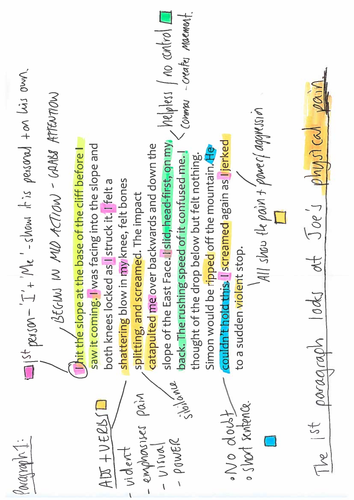 Paragraph 1:
1st person - 'I' + 'Me' - show it is personal + on his own.
BEGINS IN MID ACTION - GRABS ATTENTION
I hit the slope at the base of the cliff before I
saw it coming. I was facing into the slope and
both knees locked as I struck it. I felt a
shattering blow in my knee, felt bones
splitting, and screamed. The impact
catapulted me over backwards and down the
slope of the East Face. I slid, head-first, on my
back. The rushing speed of it confused me. I
thought of the drop below but felt nothing.
Simon would be ripped off the mountain. He
couldn't hold this. I screamed again as I jerked
to a sudden violent stop.
helpless / no control
commas - creates movement.
ADJ + VERBS
- vident
- emphasises pain
- visual
- POWER
sibilance
• No doubt
• short sentence.
All show the pain + power/aggression
The 1st paragraph looks at Joe's physical pain